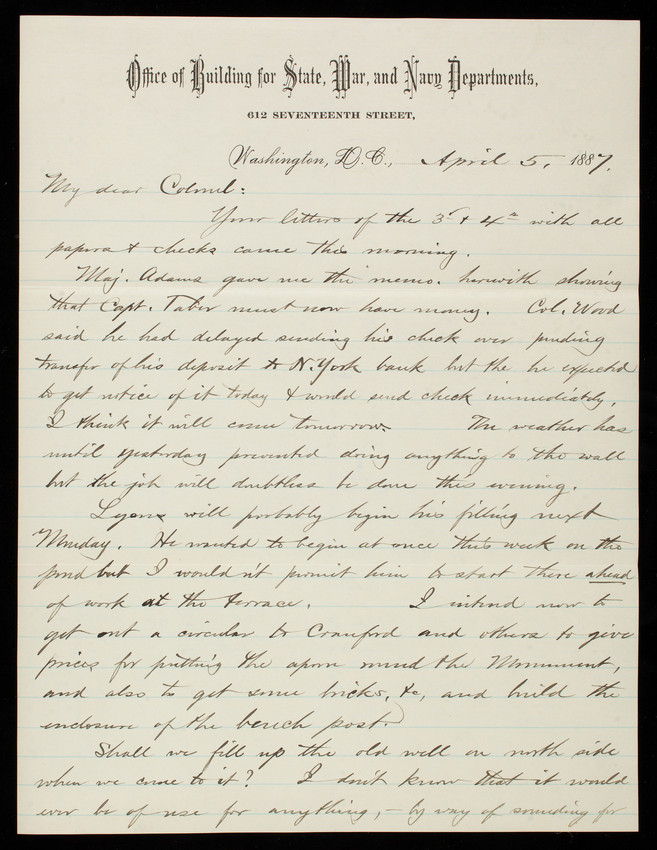 Office of Building for State, War, and Navy Departments,
612 SEVENTEENTH STREET,
Washington, D.C., April 5, 1887.
My dear Colonel:
Your letters of the 3d & 4th with all
papers & checks came this morning.
Maj. Adams gave me the memo. herewith showing
that Capt. Taber must now have money. Col. Wood
said he had delayed sending his check over pending
transfer of his deposit to N. York bank but the he expected
to get notice of it today & would send check immediately.
I think it will come tomorrow. The weather has
until yesterday prevented doing anything to the wall
but the job will doubtless be done this evening.
Lyons will probably begin his filling next
Monday. He wanted to begin at once this week on the
pond but I wouldn't permit him to start there ahead
of work at the terrace. I intend now to
get out a circular to Cranford and others to give
prices for putting the apron round the Monument,
and also to get some bricks, &c, and build the
enclosure of the bench post.
Shall we fill up the old well on north side
when we come to it? I don't know that it would
ever be of use for anything, - by way of sounding for